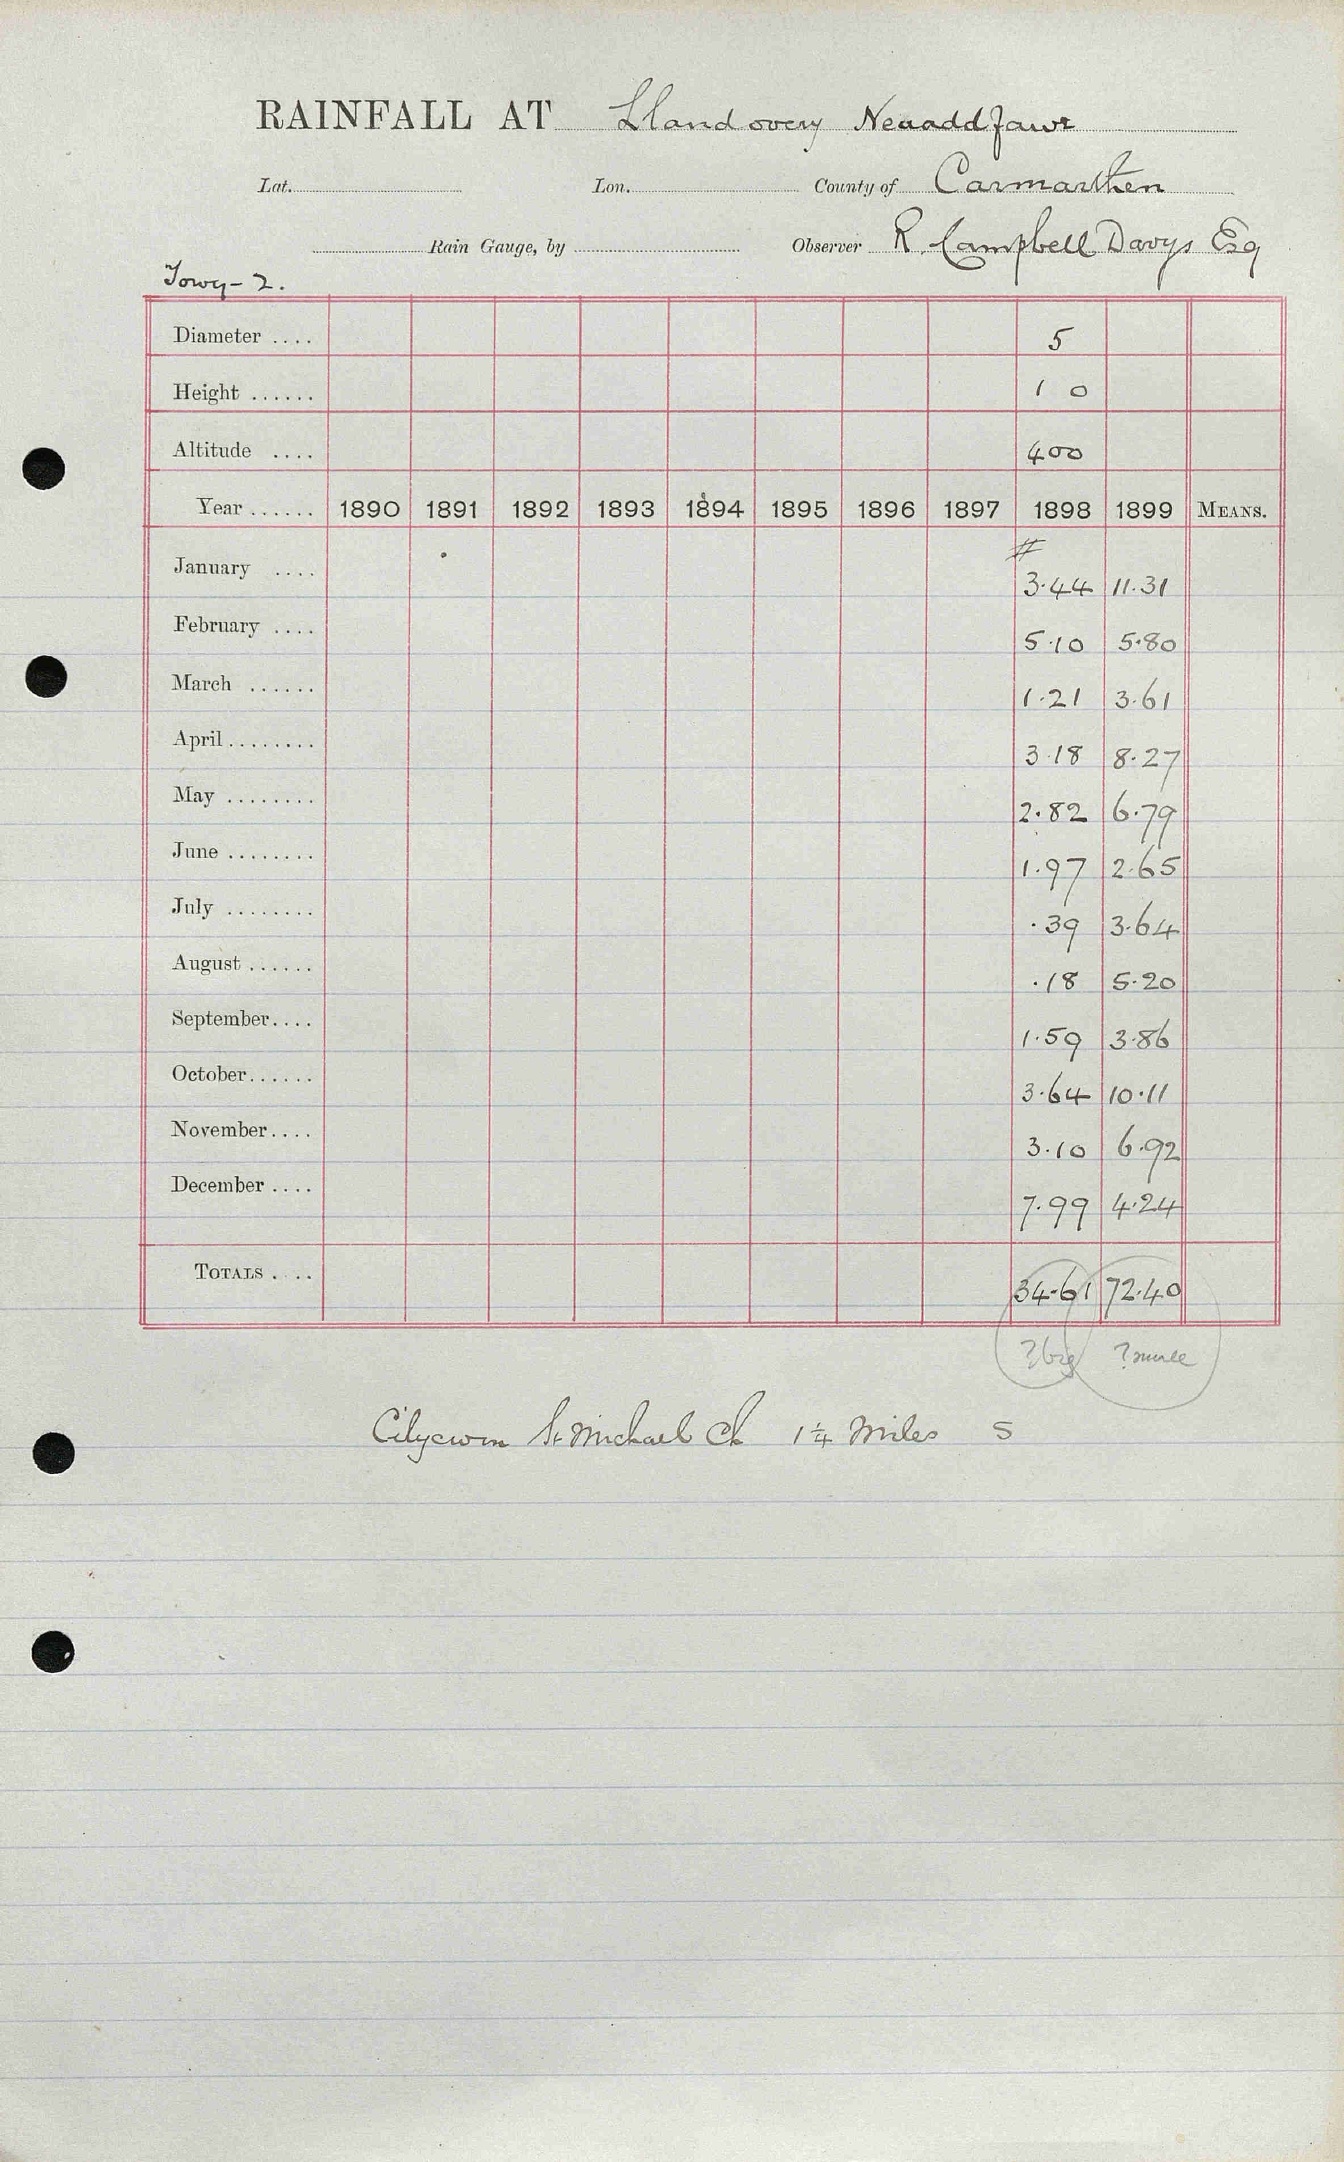 RAINFALL AT Llandovery Neuaddfawr
Lat. Lon. County of Carmarthen
Rain Gauge, by Observer R. Campbell Davys Esq
Towy-2.
Diameter .... 5
Height ...... 1 0
Altitude .... 400
Year ...... 1890 1891 1892 1893 1894 1895 1896 1897 1898 1899 MEANS.
#
January .... 3.44 11.31
February .... 5.10 5.80
March ...... 1.21 3.61
April ........ 3.18 8.27
May ........ 2.82 6.79
June ........ 1.97 2.65
July ........ .39 3.64
August ...... .18 5.20
September .... 1.59 3.86
October ...... 3.64 10.11
November .... 3.10 6.92
December .... 7.99 4.24
TOTALS . .. 34.61 72.40
Cilycwm St Michael Ch 1¼ Miles S